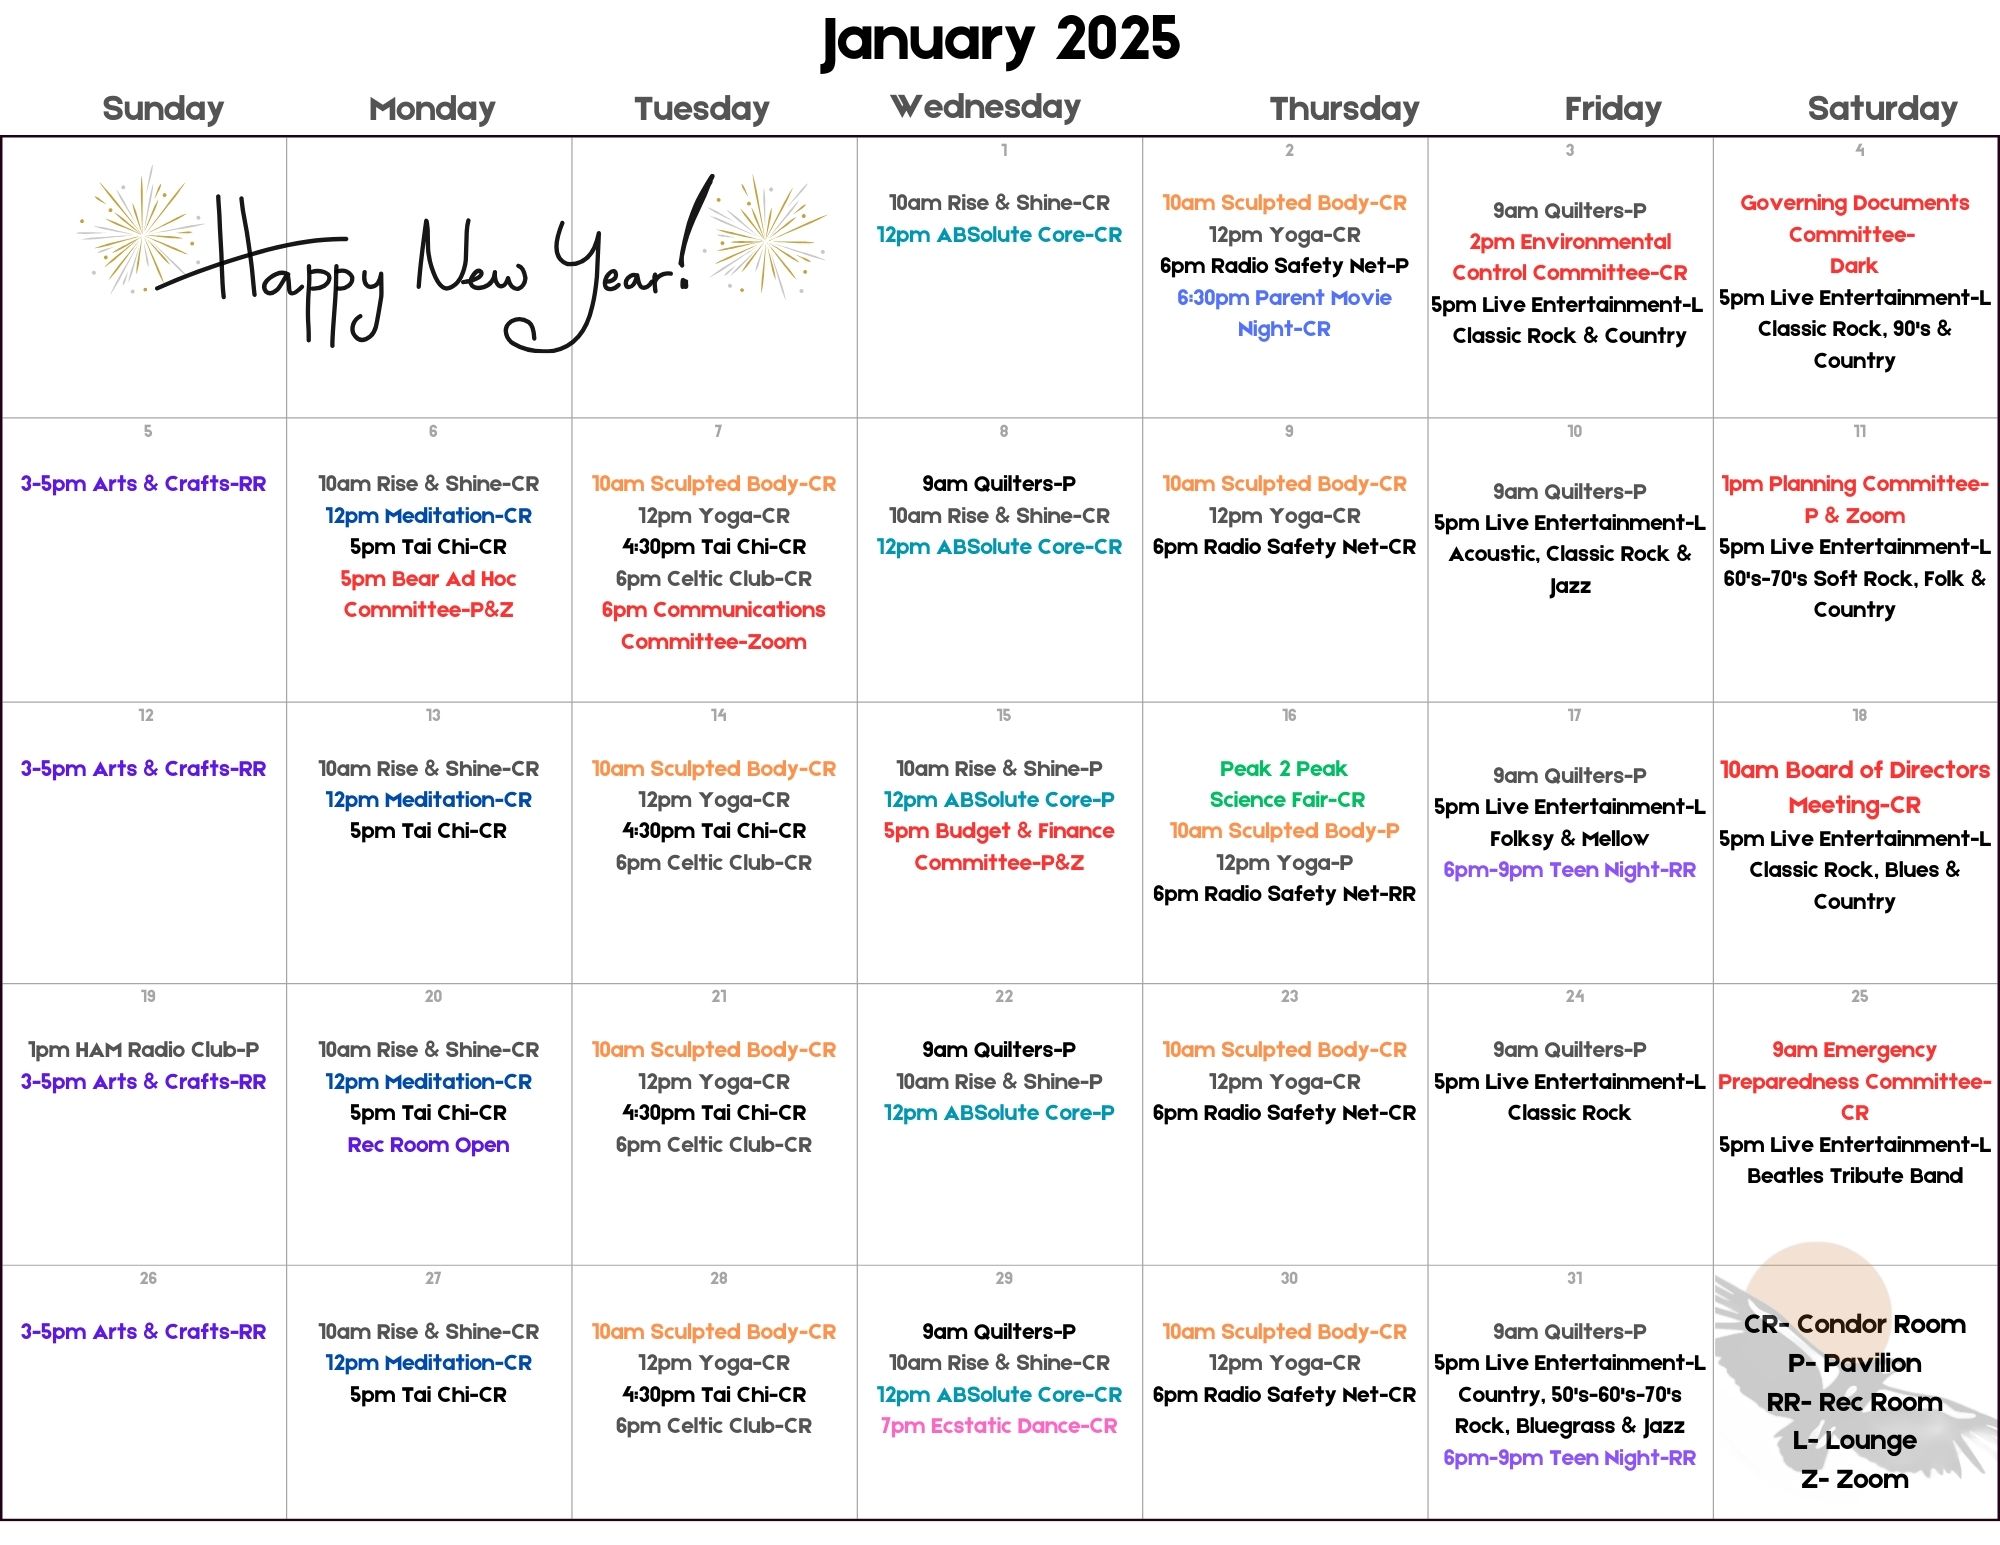 January 2025
Sunday
Monday
Tuesday
Wednesday
Thursday
Friday
Saturday
Happy New Year!
1
10am Rise & Shine-CR
12pm ABSolute Core-CR
2
10am Sculpted Body-CR
12pm Yoga-CR
6pm Radio Safety Net-P
6:30pm Parent Movie
Night-CR
3
9am Quilters-P
2pm Environmental
Control Committee-CR
5pm Live Entertainment-L
Classic Rock & Country
4
Governing Documents
Committee-
Dark
5pm Live Entertainment-L
Classic Rock, 90's &
Country
5
3-5pm Arts & Crafts-RR
6
10am Rise & Shine-CR
12pm Meditation-CR
5pm Tai Chi-CR
5pm Bear Ad Hoc
Committee-P&Z
7
10am Sculpted Body-CR
12pm Yoga-CR
4:30pm Tai Chi-CR
6pm Celtic Club-CR
6pm Communications
Committee-Zoom
8
9am Quilters-P
10am Rise & Shine-CR
12pm ABSolute Core-CR
9
10am Sculpted Body-CR
12pm Yoga-CR
6pm Radio Safety Net-CR
10
9am Quilters-P
5pm Live Entertainment-L
Acoustic, Classic Rock &
Jazz
11
1pm Planning Committee-
P & Zoom
5pm Live Entertainment-L
60's-70's Soft Rock, Folk &
Country
12
3-5pm Arts & Crafts-RR
13
10am Rise & Shine-CR
12pm Meditation-CR
5pm Tai Chi-CR
14
10am Sculpted Body-CR
12pm Yoga-CR
4:30pm Tai Chi-CR
6pm Celtic Club-CR
15
10am Rise & Shine-P
12pm ABSolute Core-P
5pm Budget & Finance
Committee-P&Z
16
Peak 2 Peak
Science Fair-CR
10am Sculpted Body-P
12pm Yoga-P
6pm Radio Safety Net-RR
17
9am Quilters-P
5pm Live Entertainment-L
Folksy & Mellow
6pm-9pm Teen Night-RR
18
10am Board of Directors
Meeting-CR
5pm Live Entertainment-L
Classic Rock, Blues &
Country
19
1pm HAM Radio Club-P
3-5pm Arts & Crafts-RR
20
10am Rise & Shine-CR
12pm Meditation-CR
5pm Tai Chi-CR
Rec Room Open
21
10am Sculpted Body-CR
12pm Yoga-CR
4:30pm Tai Chi-CR
6pm Celtic Club-CR
22
9am Quilters-P
10am Rise & Shine-P
12pm ABSolute Core-P
23
10am Sculpted Body-CR
12pm Yoga-CR
6pm Radio Safety Net-CR
24
9am Quilters-P
5pm Live Entertainment-L
Classic Rock
25
9am Emergency
Preparedness Committee-
CR
5pm Live Entertainment-L
Beatles Tribute Band
26
3-5pm Arts & Crafts-RR
27
10am Rise & Shine-CR
12pm Meditation-CR
5pm Tai Chi-CR
28
10am Sculpted Body-CR
12pm Yoga-CR
4:30pm Tai Chi-CR
6pm Celtic Club-CR
29
9am Quilters-P
10am Rise & Shine-CR
12pm ABSolute Core-CR
7pm Ecstatic Dance-CR
30
10am Sculpted Body-CR
12pm Yoga-CR
6pm Radio Safety Net-CR
31
9am Quilters-P
5pm Live Entertainment-L
Country, 50's-60's-70's
Rock, Bluegrass & Jazz
6pm-9pm Teen Night-RR
CR- Condor Room
P- Pavilion
RR- Rec Room
L- Lounge
Z- Zoom